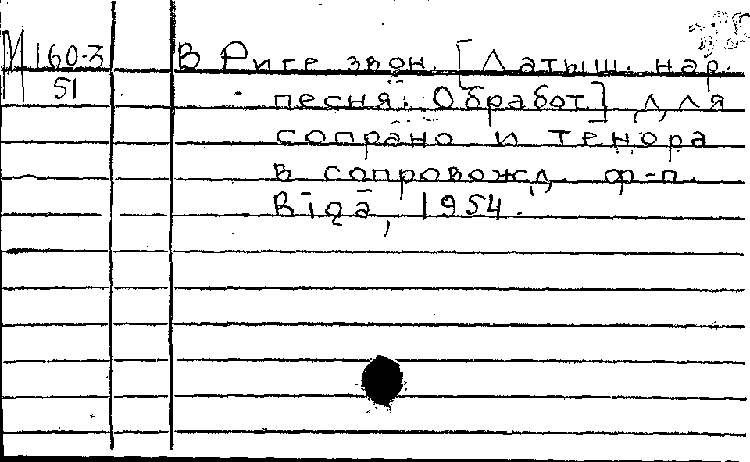 М 160-3
51
В Риге звон. [Латыш. нар.
песня. Обработ] для
сопрано и тенора
в сопровожд. ф-п.
Rīgā, 1954.